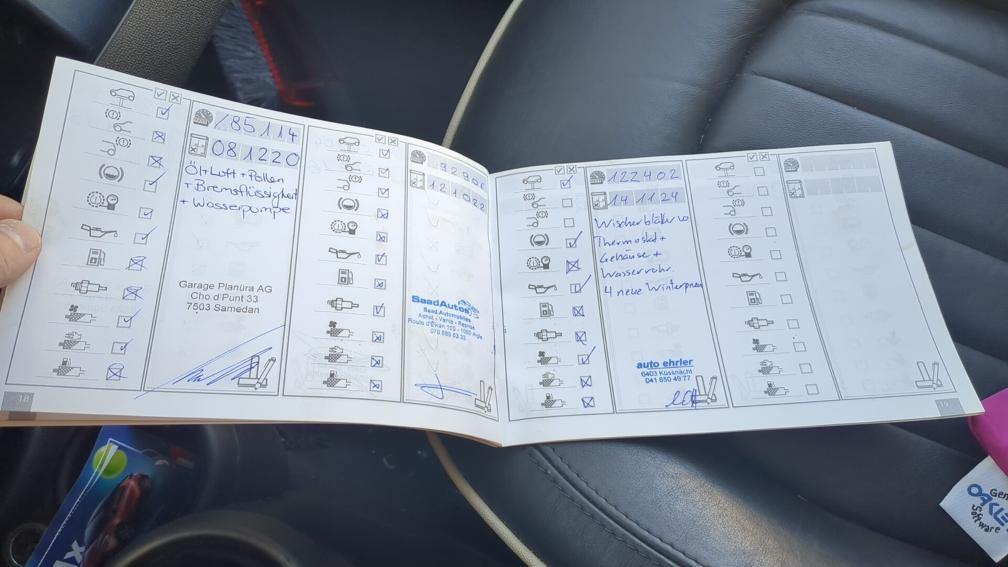 /85114
081220
Öl+Luft+Pollen
+Bremsflüssigkeit
+ Wasserpumpe
Garage Planüra AG
Cho d'Punt 33
7503 Samedan
18
121022
SaadAutos
Saad Automobiles
Achat - Vente - Reprise
078 889 53 33
122402
141124
Wischerblätter
Thermostat +
Gehäuse +
Wasserrohr.
4 neue
auto ehrler
6403 Küssnacht
041 850 49 77
19
Software